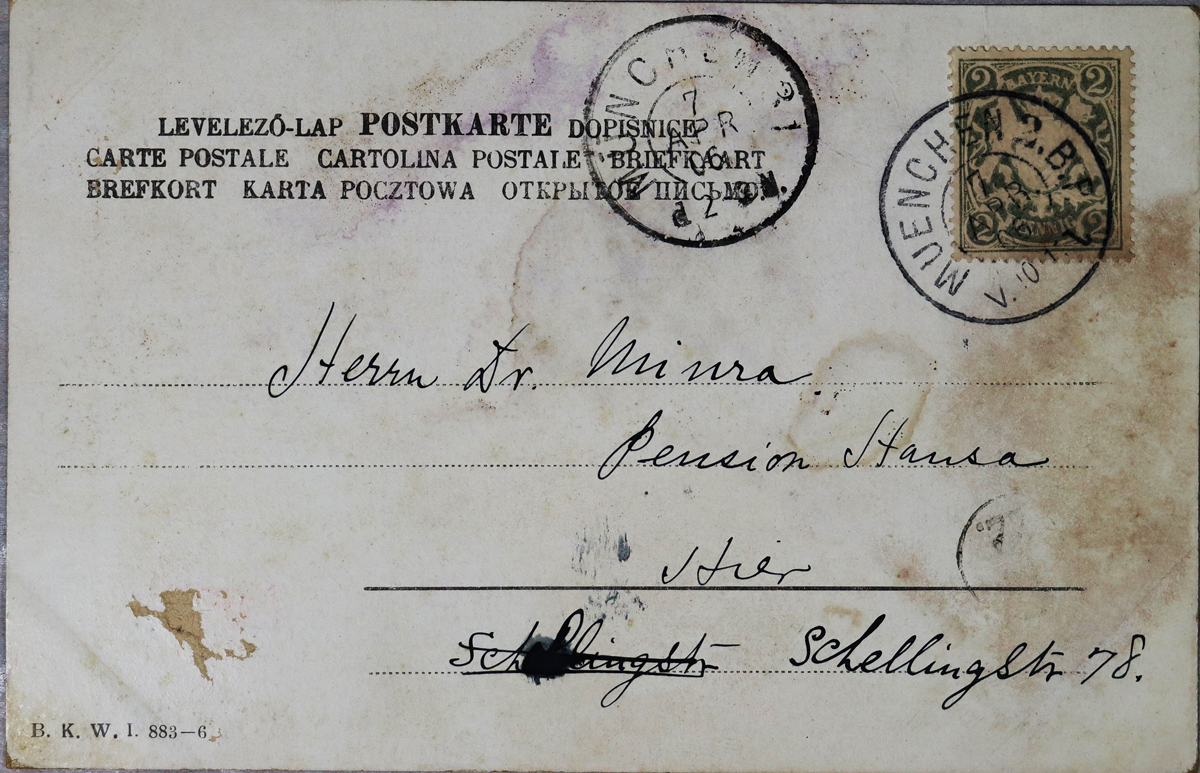 LEVELEZŐ-LAP POSTKARTE DOPISNICE
CARTE POSTALE CARTOLINA POSTALE BRIEFKAART
BREFKORT KARTA POCZTOWA ОТКРЫТОЕ ПИСЬМО.
MUENCHEN 31
7
APR
06
BAYERN
2 2
2 2
MUENCHEN 2.B.P.
Herrn Dr. Miura
Pension Hansa
Hier
Schellingstr Schellingstr 78.
B. K. W. I. 883—6